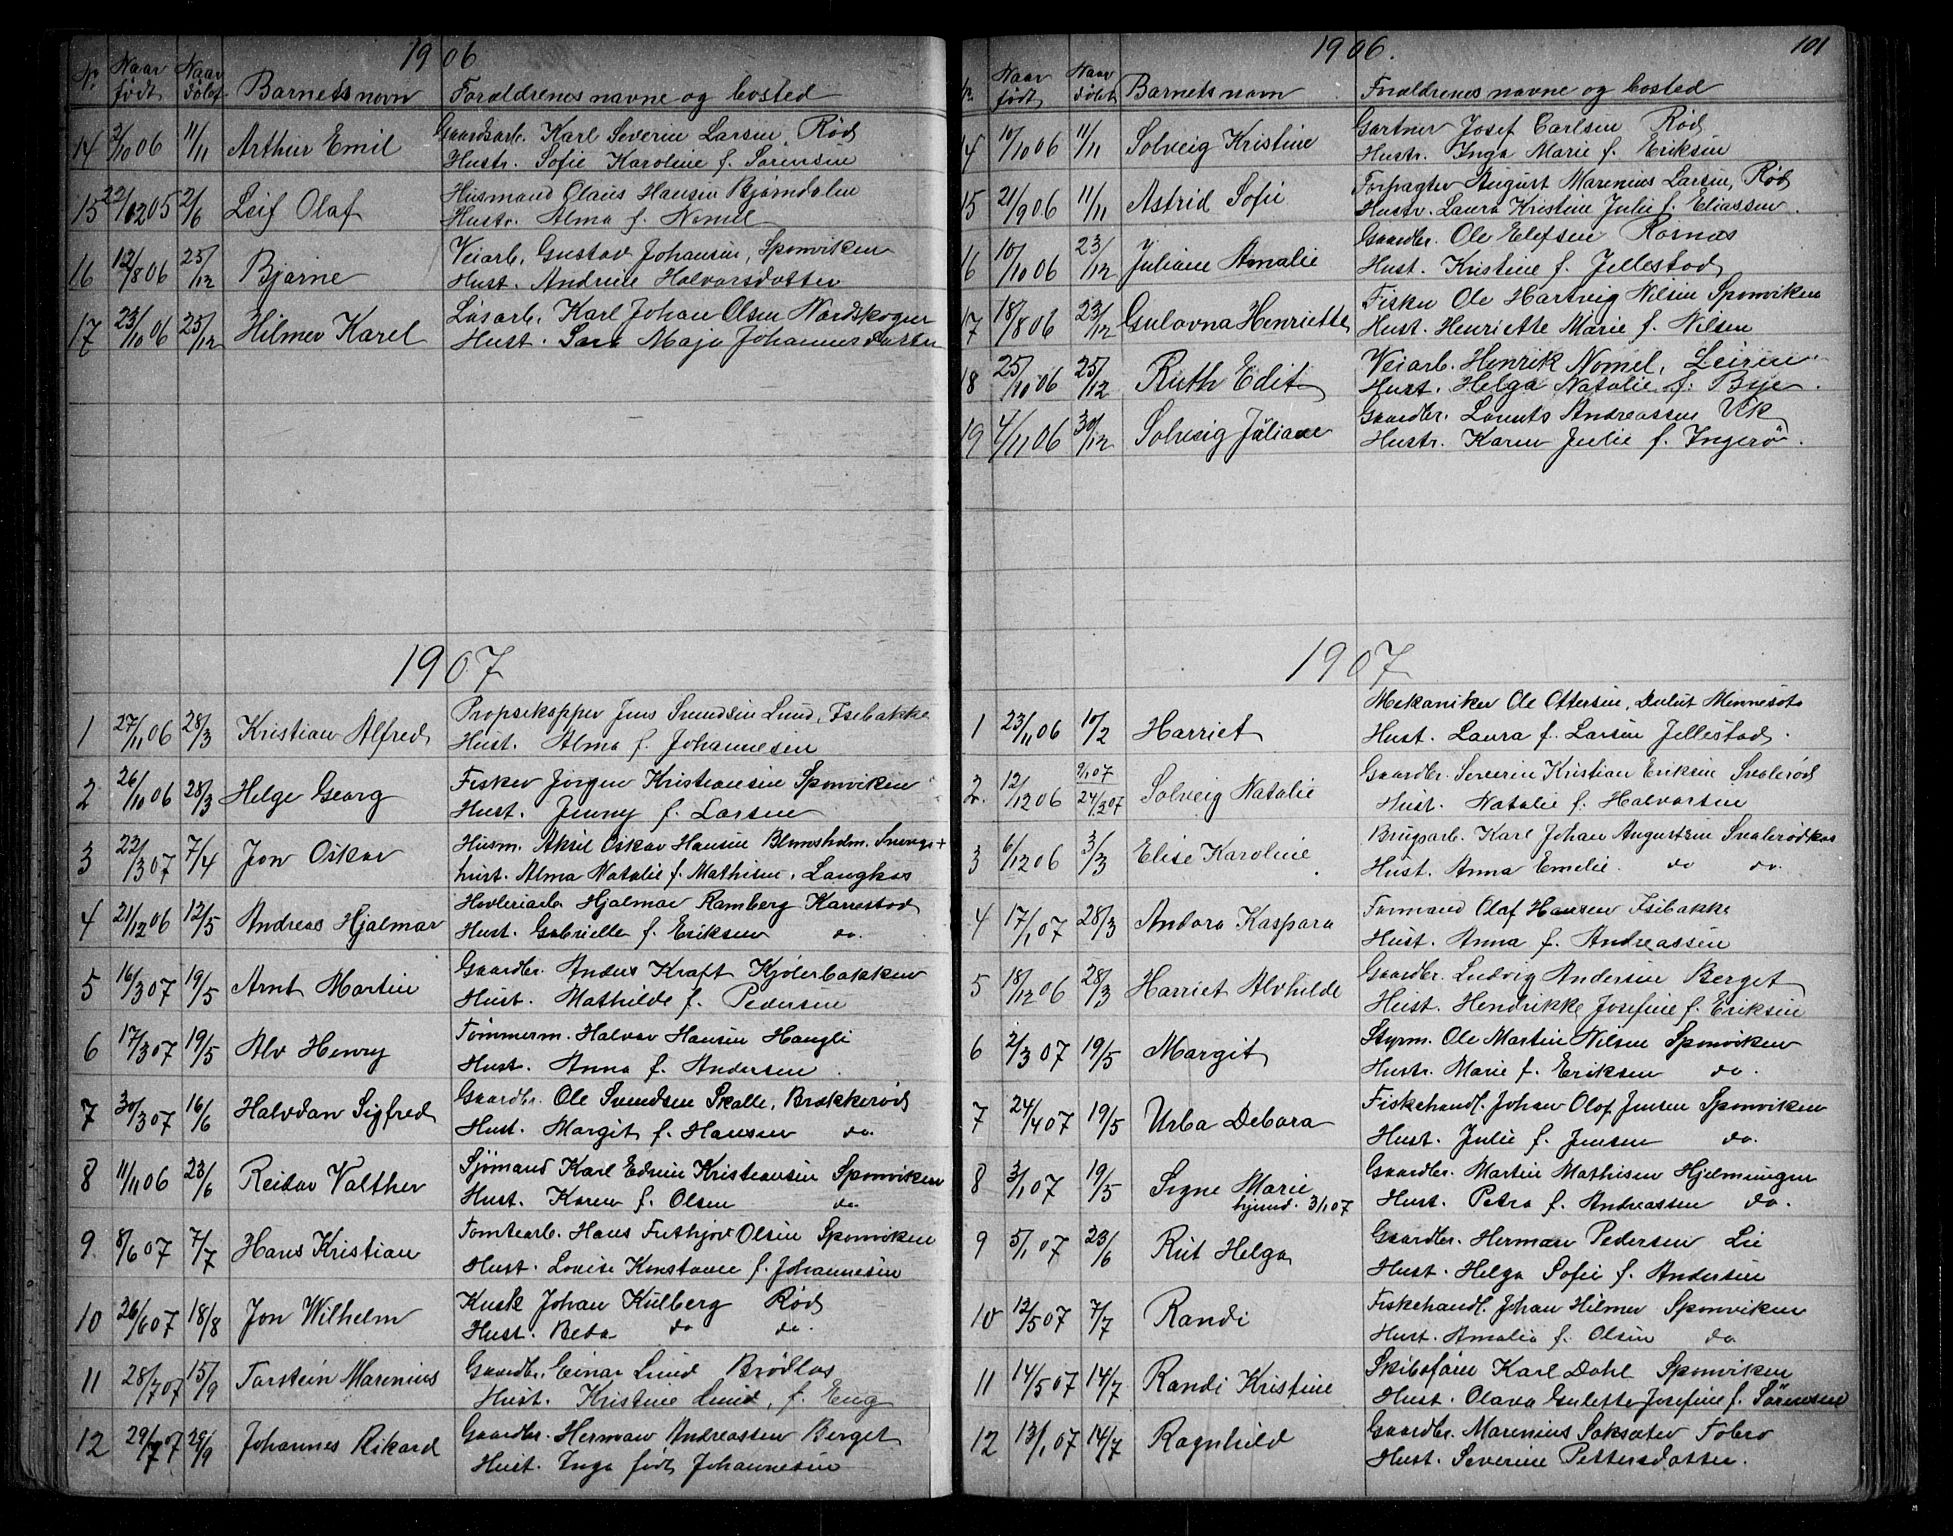 1906
Nr. Naar født Naar døbt Barnets navn Forældrenes navne og bosted
14 2/10 06 11/11 Arthur Emil Gaardsarb. Karl Severin Larsen, Rød
Hustr. Sofie Karoline f. Sørensen
15 22/12 05 2/6 Leif Olaf Husmand Olaus Hansen Bjørndalen
Hustr. Alma f. Nomel
16 12/8 06 25/12 Bjarne Veiarb. Gustav Johansen, Sponviken
Hust. Andrine Halvorsdotter
17 23/10 06 25/12 Hilmer Karel Løsarb. Karl Johan Olsen Nordskogen
Hust. Sara Maja Johannesdotter
1907
1 27/11 06 28/3 Kristian Alfred Propsekapper Jens Svendsen Lund, Isebakke
Hust. Alma f. Johannesen
2 26/10 06 28/3 Helge Georg Fisker Jørgen Kristiansen Sponviken
Hust. Jenny f. Larsen
3 22/3 07 7/4 Jon Oskar Husm. Aksel Oskar Hansen Blomsholm.
hust. Alma Natalie f. Mathisen, Langkas
4 21/12 06 12/5 Andreas Hjalmar Høvleriarb. Hjalmar Ramberg Karrestad
Hust. Gabrielle f. Eriksen do.
5 16/3 07 19/5 Arnt Martin Gaardbr. Anders Kraft Kjølerbakken
Hust. Mathilde f. Pedersen
6 17/3 07 19/5 Alv Henry Tømmerm. Halvor Hansen Haugli
Hust. Anna f. Andersen
7 30/3 07 16/6 Halvdan Sigfred Gaardbr. Ole Svendsen Skalle, Brækkerød
Hust. Margit f. Hansen do.
8 11/11 06 23/6 Reidar Valther Sjømand Karl Edvin Kristiansen Sponviken
Hust. Karen f. Olsen do.
9. 8/6 07 7/7 Hans Kristian Tomtearb. Hans Frithjov Olsen Sponviken
Hust. Lovise Konstance f. Johannesen
10 26/6 07 18/8 Jon Wilhelm Kusk Johan Kulberg Rød
Hust. Beda do do.
11 28/7 07 15/9 Torstein Marenius Gaardbr. Einar Lund Brødløs
Hust. Kristine Lund, f. Eng
12 29/7 07 29/9 Johannes Rikard Gaardbr. Herman Andreassen Berget
Hust. Inga født Johannesen
1906.
101
Nr. Naar født Naar døbt Barnets navn Forældrenes navne og bosted
14 10/10 06 11/11 Solveig Kristine Gartner Josef Carlsen Rød
Hustr. Inga Marie f. Eriksen
15 21/9 06 11/11 Astrid Sofie Forpagter August Marenius Larsen, Rød
Hustr. Laura Kristine Julie f. Eliassen.
16 10/10 06 23/12 Juliane Amalie Gaardbr. Ole Elefsen Rørnæs
Hust. Kristine f. Jellestad
17 18/8 06 23/12 Gulovna Henriette Fisker Ole Hartvig Nilsen Sponviken
Hust. Henriette Marie f. Nilsen
18 25/10 06 25/12 Ruth Edit Veiarb. Henrik Nomel, Leiren
Hust. Helga Natalie f. Bye.
19 4/11 06 30/12 Solveig Juliane Gaardbr. Lorents Andreassen Vik
Hustr. Karen Julie f. Ingerø.
1907
1 23/11 06 10/2 Harriet Mekaniker Ole Ottersen, Dulut Minnesota
Hust. Laura f. Larsen Jellestad.
2. 12/12 06 9/1 07 24/2 07 Solveig Natalie Gaardbr. Severin Kristian Eriksen Svalerød
Hust. Natalie f. Halvorsen
3 6/12 06 3/3 Elise Karoline Brugsarb. Karl Johan Augustsen Svalerødkas
Hust. Anna Emelie. do do.
4 17/1 07 28/3 Andora Kaspara Formand Olaf Hansen Isebakke
Hust. Anna f. Andreassen
5 18/12 06 28/3 Harriet Alvhilde Gaardbr. Ludvig Andersen Berget
Hust. Hendrikke Josefine f. Eriksen
6 2/3 07 19/5 Margit Styrm. Ole Martin Nilsen Sponviken
Hustr. Marie f. Eriksen do.
7 24/4 07 19/5 Urba Debora Fiskehandl. Johan Olof Jensen Sponviken
Hust. Julie f. Jensen do.
8 3/1 07 19/5 Signe Marie Gaardbr. Martin Mathisen Hjelmungen
hjemd. 3/1 07 Hust. Petra f. Andreassen do.
9 5/1 07 23/6 Rut Helga Gaardbr. Herman Pedersen Lie
Hust. Helga Sofie f. Andersen
10 12/5 07 7/7 Randi Fiskehandl. Johan Hilmer Sponviken
Hust. Amalia f. Olsen do
11 14/5 07 14/7 Randi Kristine Skibsfører Karl Dahl Sponviken
Hust. Olava Gulette Josefine f. Sørensen
12 13/1 07 14/7 Ragnhild Gaardbr. Marenius Saksæter Fobro
Hust. Severine Pettersdatter.